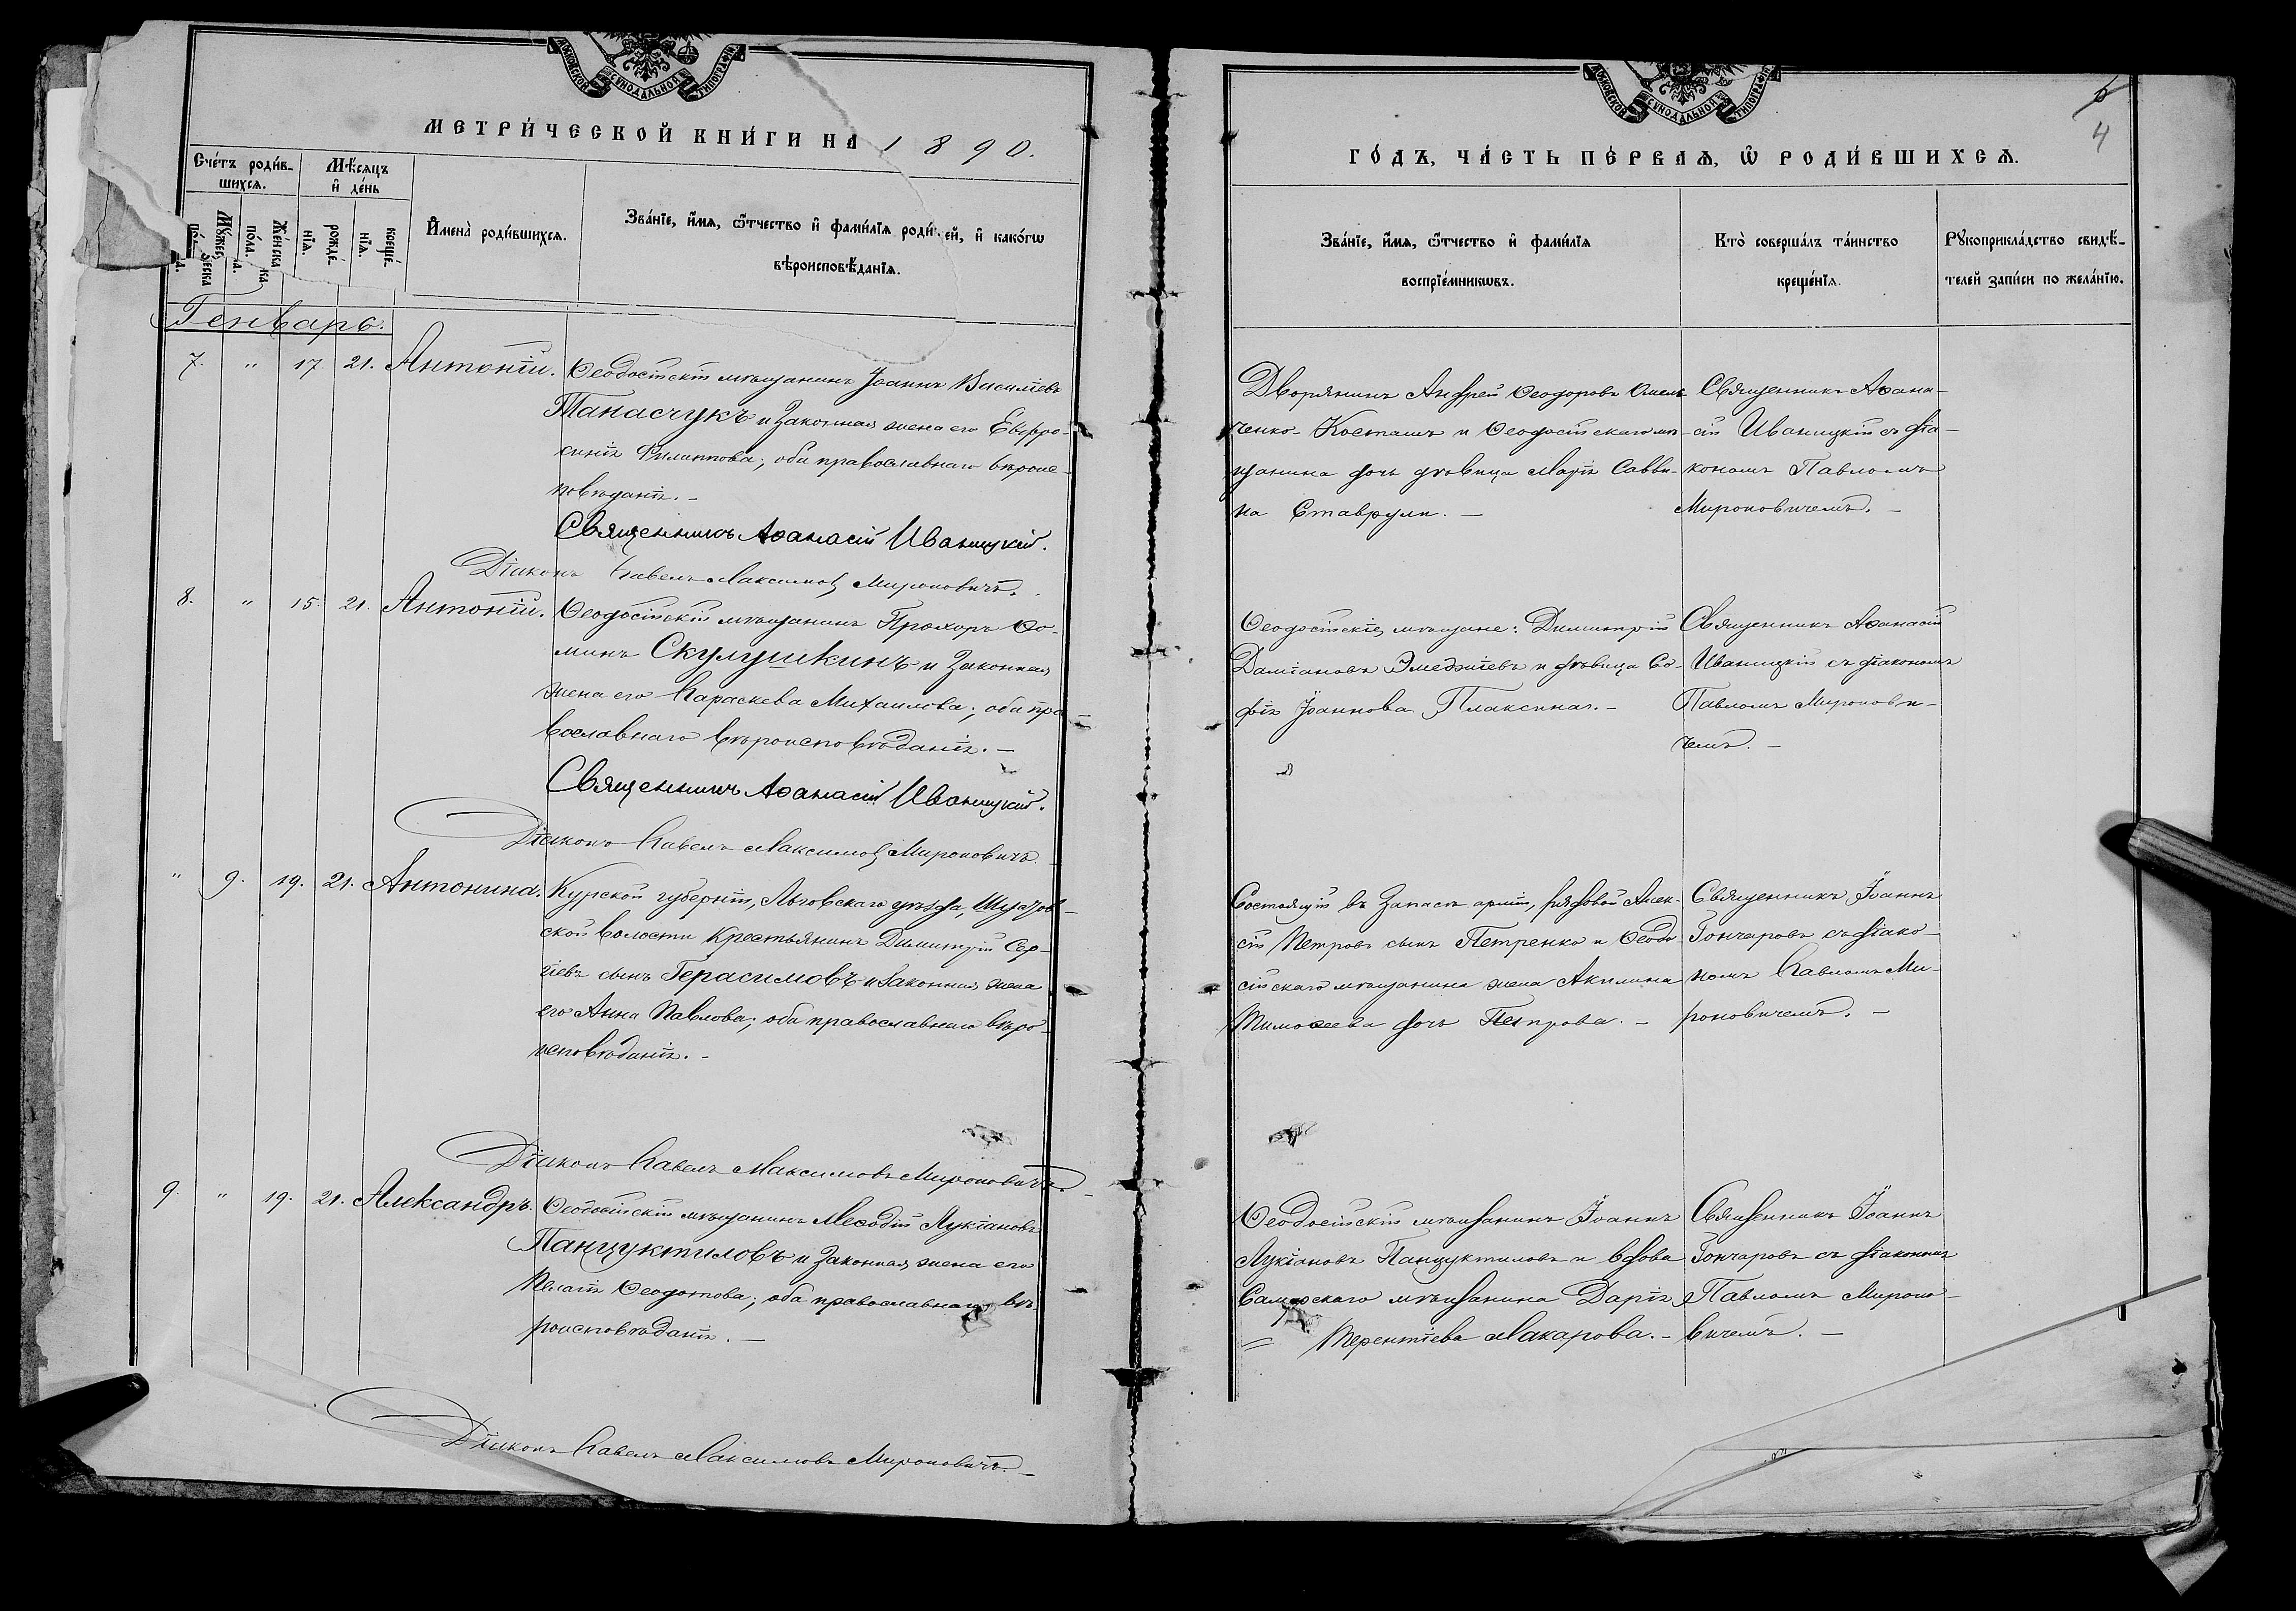 МОСКОВСКОЙ СУНОДАЛЬНОЙ ТИПОГРАФІИ
МЕТРИ́ЧЕСКОЙ КНИ́ГИ НА 1890.
Сче́тъ роди́в-
шихся.
Мѣ́сяцъ
и҆ де́нь
Же́нска
по́ла.
рожде́-
нїя.
креще́-
нїя.
И҆мена̀ роди́вшихся.
Зва́нїе, и҆́мя, ѻ҆́тчество и҆ фами́лїя роди ей, и҆ како́гѡ
вѣроисповѣ́данїя.
Генварь.
7. " 17. 21. Антоній. Ѳеодосійскій мѣщанинъ Іоаннъ Василіевъ
Танасчукъ и законная жена его Евфро-
синія Филиппова; оба православнаго вѣроис-
повѣданія. –
Священникъ Аѳанасій Иваницкій.
Діаконъ Павелъ Максимовъ Мироновичъ.
8. " 15. 21. Антоній. Ѳеодосійскій мѣщанинъ Прохоръ Ѳо-
минъ Скулушкинъ и законная
жена его Параскева Михаилова; оба пра-
вославнаго вѣроисповѣданія. –
Священникъ Аѳанасій Иваницкій.
Діаконъ Павелъ Максимовъ Мироновичъ.
" 9. 19. 21. Антонина. Курской губерніи, Льговскаго уѣзда,
ской волости крестьянинъ Димитрій Сер-
гіевъ сынъ Герасимовъ и законная жена
его Анна Павлова; оба православнаго вѣро-
исповѣданія. –
Діаконъ Павелъ Максимовъ Мироновичъ.
9. " 19. 21. Александръ. Ѳеодосійскій мѣщанинъ Меѳодій Лукіановъ
Панцуктиловъ и законная жена его
Пелагія Ѳеодотова; оба православнаго вѣ-
роисповѣданія. –
Діаконъ Павелъ Максимовъ Мироновичъ. –
МОСКОВСКОЙ СУНОДАЛЬНОЙ ТИПОГРАФІИ
6
4
ГО́ДЪ, ЧА́СТЬ ПЕ́РВАЯ, Ѡ҆ РОДИ́ВШИХСЯ.
Зва́нїе, и҆́мя, ѻ҆́тчество и҆ фами́лїя
воспрїе́мникѡвъ.
Кто̀ соверша́лъ та́инство
креще́нїя.
Рꙋкоприкла́дство свидѣ́-
телей за́писи по жела́нїю.
Дворянинъ Андрей Ѳеодоровъ Омель-
ченко-Косташъ и Ѳеодосійскаго мѣ-
щанина дочь дѣвица Марія Савви-
на Ставрули. –
Священникъ Аѳана-
сій Иваницкій съ діа-
кономъ Павломъ
Мироновичемъ. –
Ѳеодосійскіе мѣщане: Димитрій
Даміановъ Эмеджіевъ и дѣвица Со-
фія Іоаннова Плаксина. –
Священникъ Аѳанасій
Иваницкій съ діакономъ
Павломъ Миронови-
чемъ. –
Состоящій въ запасѣ арміи, рядовой Алек-
сій Петровъ сынъ Петренко и Ѳеодо-
сійскаго мѣщанина жена Акилина
Тимоѳеева дочь Петрова. –
Священникъ Іоаннъ
Гончаровъ съ діако-
номъ Павломъ Ми-
роновичемъ. –
Ѳеодосійскій мѣщанинъ Іоаннъ
Лукіановъ Панцуктиловъ и вдова
Самарскаго мѣщанина Дарія
Терентіева Макарова. –
Священникъ Іоаннъ
Гончаровъ съ діакономъ
Павломъ Мироно-
вичемъ. –